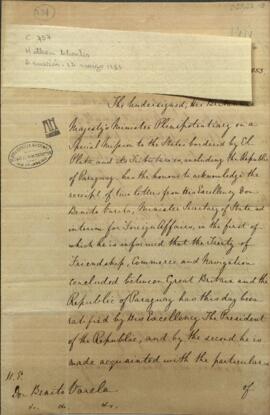 C 757
Asunción, 12 marzo 1853
1853
The Undersigned, Her Britannic
Majesty's Minister Plenipotentiary on a
Special Mission to the States bordered by El
Plata and its Tributaries, including the Republic
of Paraguay has the honour to acknowledge the
receipt of two letters from His Excellency Don
Benito Varela, Minister Secretary of State ad
interim for Foreign Affairs, in the first of
which he is informed that the Treaty of
Friendship, Commerce and Navigation
concluded between Great Britain and the
Republic of Paraguay has this day been
ratified by His Excellency The President
of the Republic, and by the second he is
made acquainted with the particulars
of
H.E.
Don Benito Varela
&c. &c. &c.